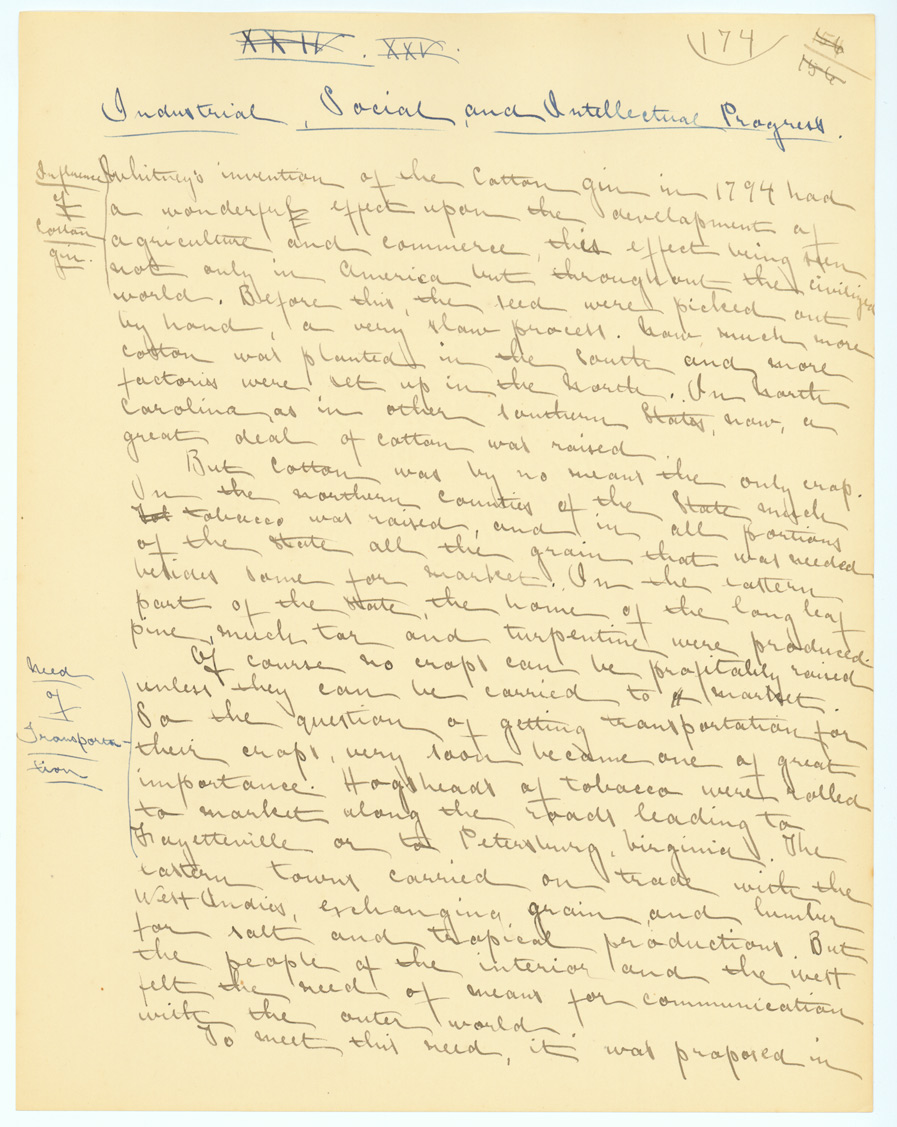 XXIV. XXV.
174
154
156
Industrial, Social, and Intellectual Progress.
Influence
of
Cotton
gin.
Whitney's invention of the Cotton gin in 1794 had
a wonderful effect upon the development of
agriculture and commerce, this effect being seen
not only in America but throughout the civilized
world. Before this, the seed were picked out
by hand, a very slow process. Now, much more
cotton was planted in the South and more
factories were set up in the North. In North
Carolina, as in other southern States, now, a
great deal of cotton was raised.
But cotton was by no means the only crop.
In the northern counties of the State much
Tob tobacco was raised, and in all portions
of the State all the grain that was needed
besides some for market. In the eastern
part of the State, the home of the long leaf
pine, much tar and turpentine were produced.
Need
of
Transporta-
tion
Of course no crops can be profitably raised
unless they can be carried to market.
So the question of getting transportation for
their crops, very soon became one of great
importance. Hogsheads of tobacco were rolled
to market along the roads leading to
Fayetteville or to Petersburg, Virginia. The
eastern towns carried on trade with the
West Indies, exchanging grain and lumber
for salt and tropical productions. But
the people of the interior and the west
felt the need of means for communication
with the outer world.
To meet this need, it was proposed in